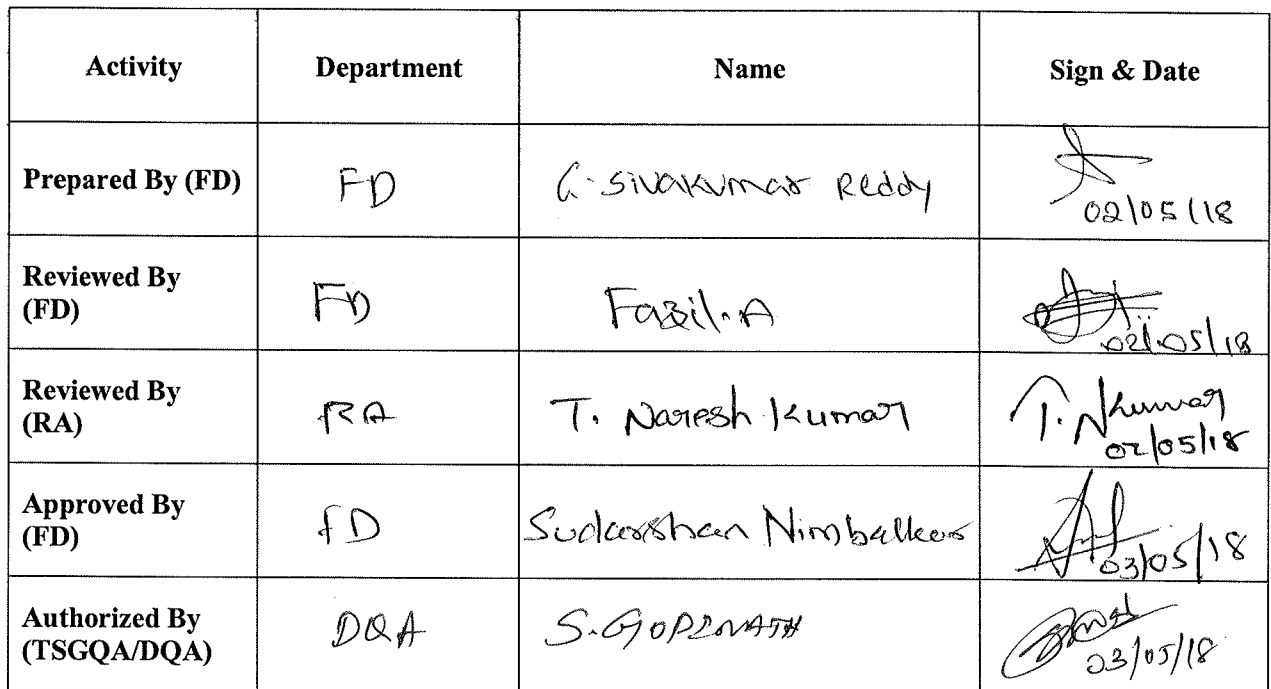 Activity Department Name Sign & Date
Prepared By (FD) FD G. Sivakumar Reddy 02/05/18
Reviewed By
(FD) FD Fazil. A 02/05/18
Reviewed By
(RA) RA T. Naresh Kumar T. Nkumar
02/05/18
Approved By
(FD) FD Sudarshan Nimbalkar 03/05/18
Authorized By
(TSGQA/DQA) DQA S. GOPINATH 03/05/18